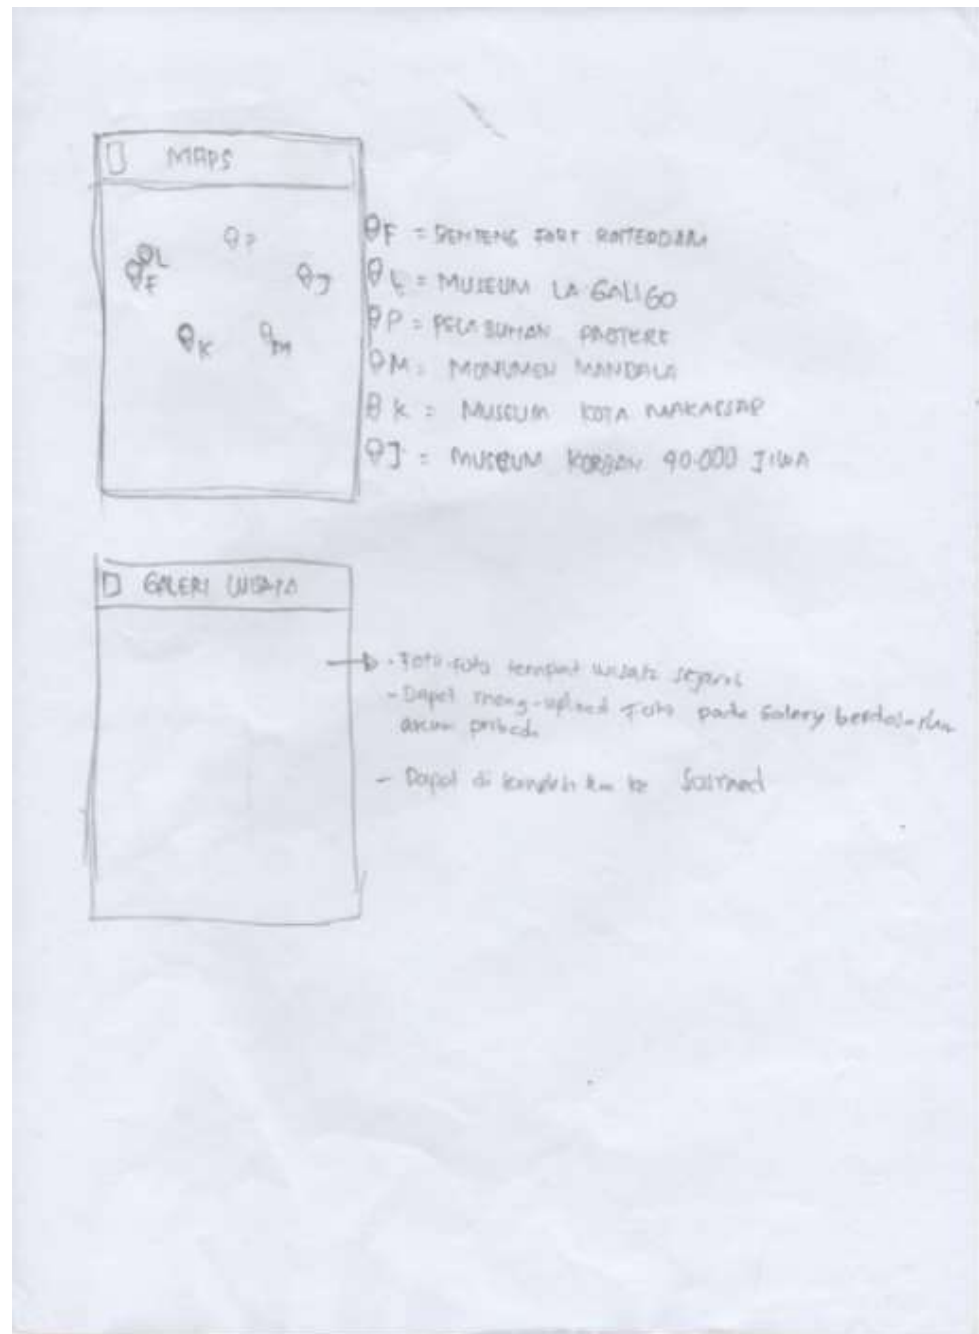 MAPS
P
L
F
J
K
M
F = BENTENG FORT ROTTERDAM
L = MUSEUM LA GALIGO
P = PELABUHAN PAOTERE
M = MONUMEN MANDALA
K = MUSEUM KOTA MAKASSAR
J = MUSEUM KORBAN 40.000 JIWA
GALERI WISATA
- Foto-foto tempat wisata sejarah
- Dapat meng-upload foto pada Galery berdasarkan
akun pribadi
- Dapat di ke Sosmed